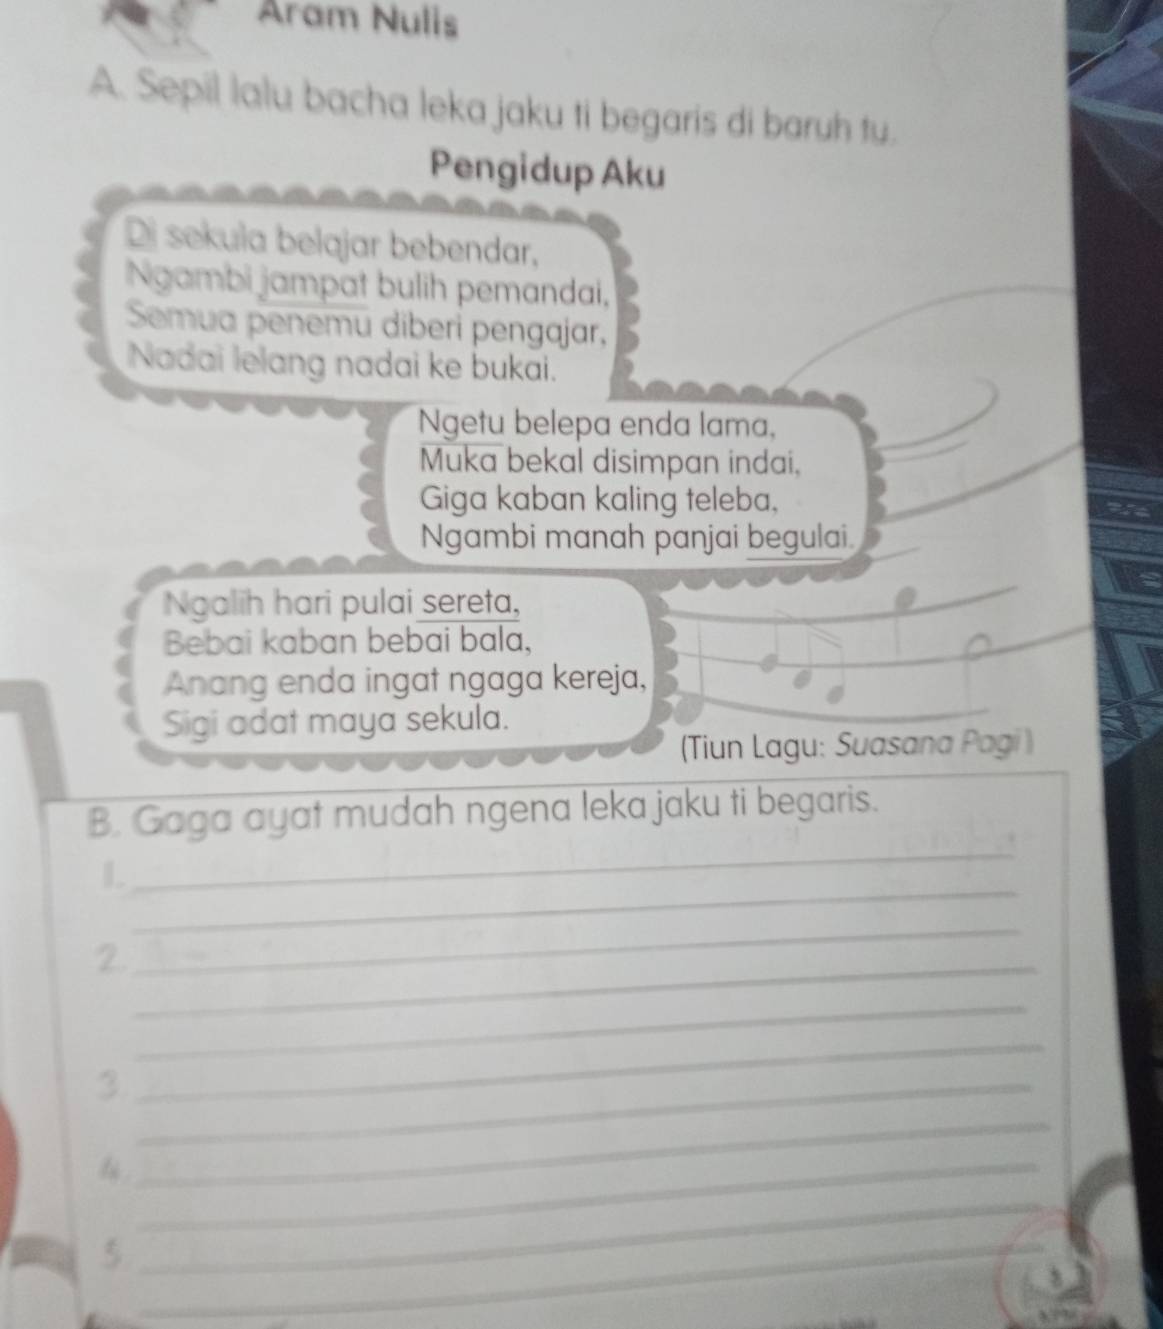 Aram Nulis
A. Sepil lalu bacha leka jaku ti begaris di baruh tu.
Pengidup Aku
Di sekula belajar bebendar,
Ngambi jampat bulih pemandai,
Semua penemu diberi pengajar,
Nadai lelang nadai ke bukai.
Ngetu belepa enda lama,
Muka bekal disimpan indai,
Giga kaban kaling teleba,
Ngambi manah panjai begulai.
Ngalih hari pulai sereta,
Bebai kaban bebai bala,
Anang enda ingat ngaga kereja,
Sigi adat maya sekula.
(Tiun Lagu: Suasana Pagi)
B. Gaga ayat mudah ngena leka jaku ti begaris.
1.
2.
3.
4.
5.